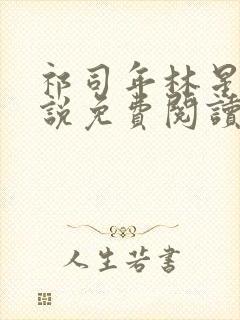 祁司年林星
説免費閱讀
人生若書